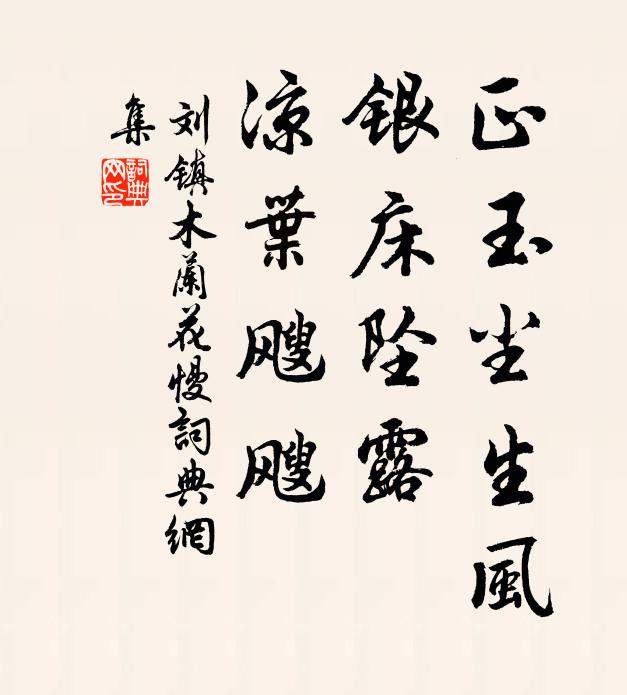 正玉尘生風
银床坠露
凉葉飕飕
刘镇木蘭花慢詞典網
集
詞典
网印